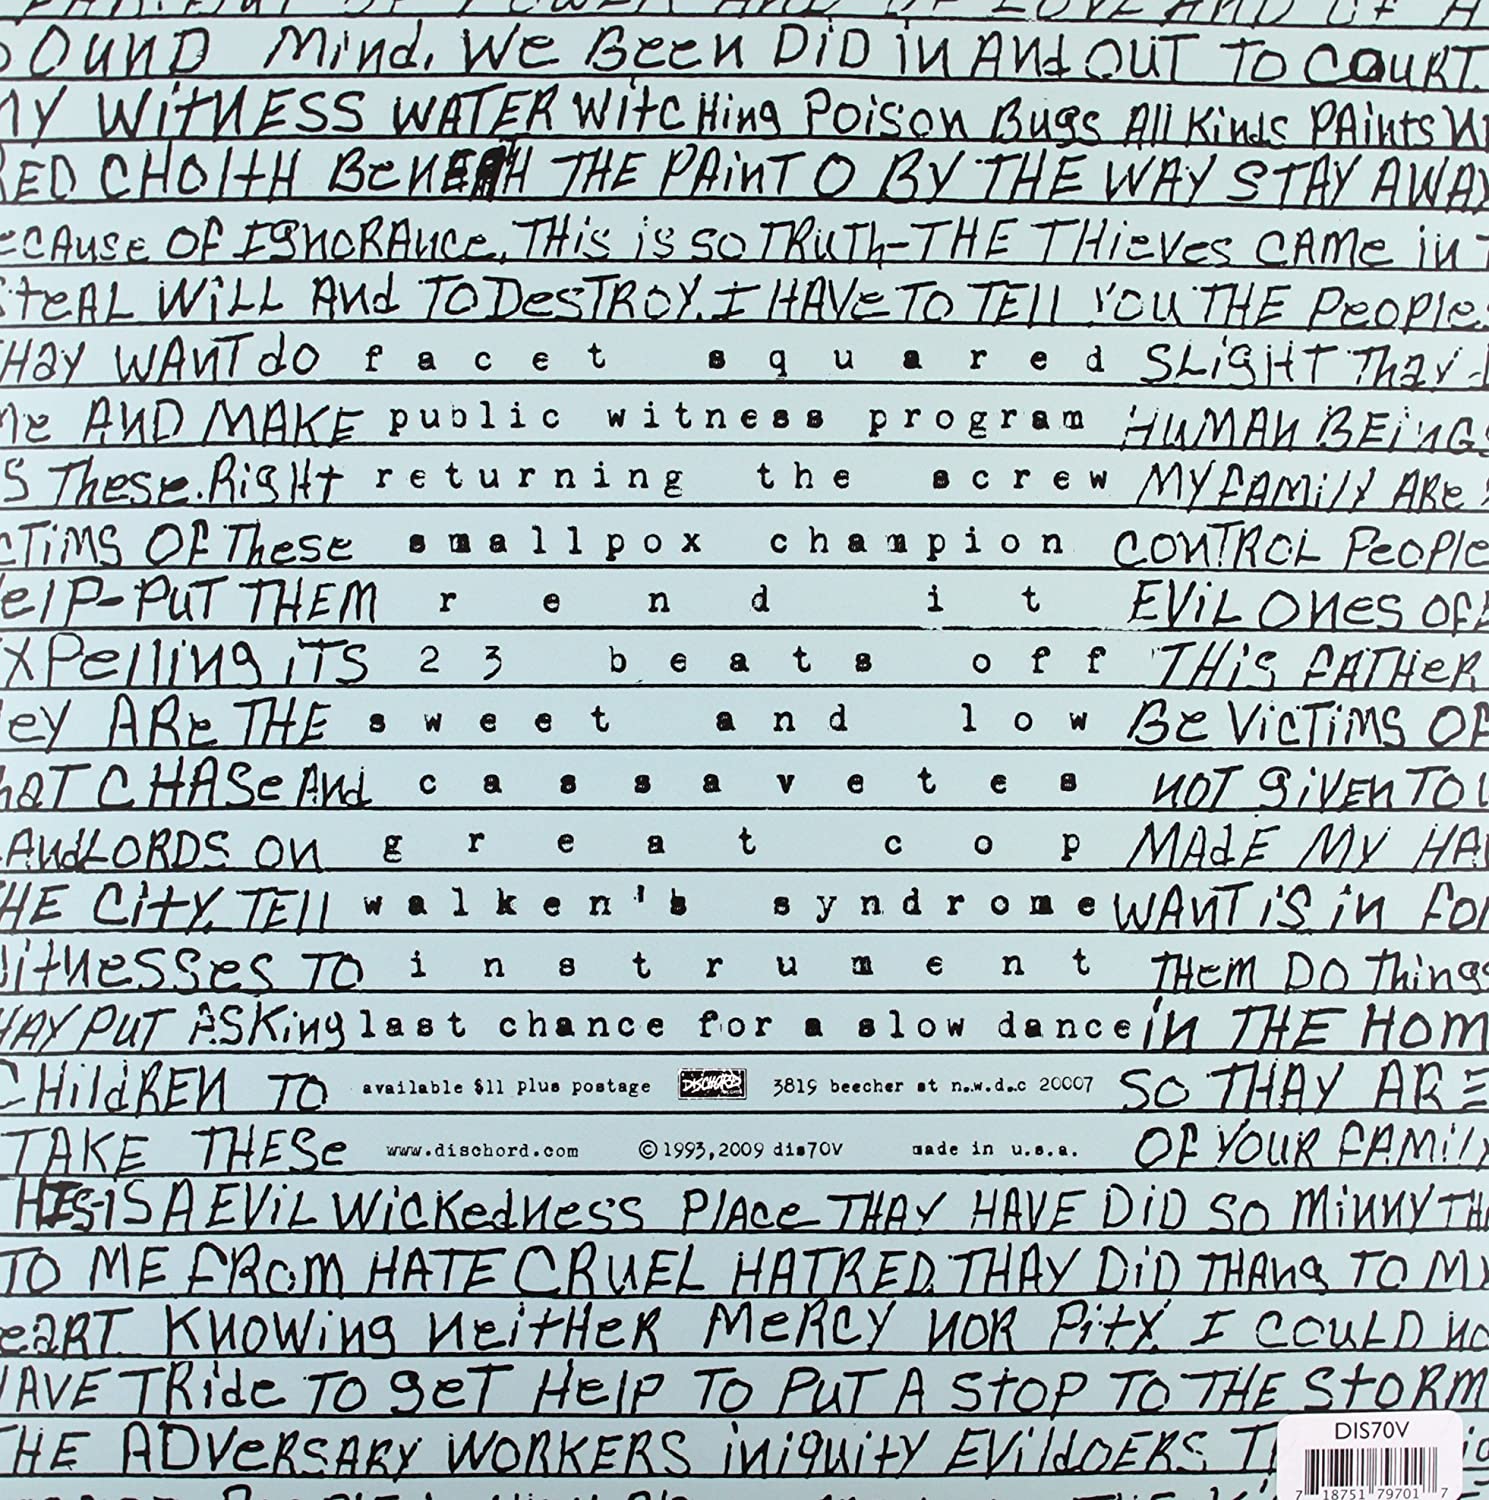 OUND MiND. WE BEEN DiD iN AND OUT TO COURT.
MY WitNESS WATER WitcHing POiSON BUgS All KiNdS PAiNtS
RED CHOltH BENEATH THE PAiNT O BY THE WAY STAY AWAY
ECAUSE OF IgNORANCE, THiS iS SO TRUTh-THE THiEVES CAME iN T
StEAL WiLL AND TO DESTROY. I HAVE TO TELL YOU THE PEOPlE.
THAY WANT dO facet squared SLigHT THAY
ME AND MAKE public witness program HUMAN BEiNGS
S THESE. RigHt returning the screw MY FAMilY ARE
CTiMS OF THESE smallpox champion CONTROL PEOPlE
ElP-PUT THEM rend it EViL ONES OF
XPElliNg iTS 23 beats off THiS FATHER
EY ARE THE sweet and low BE ViCTiMS OF
HAT CHASE AND cassavetes NOT giVEN TO
LANdLORDS ON great cop MADE MY HA
HE CitY, TEll walken's syndrome WANT iS iN FO
WitNESSES TO instrument THEM DO THiNgS
HAY PUT ASKiNg last chance for a slow dance iN THE HOM
CHildREN TO available $11 plus postage DISCHORD 3819 beecher st n.w.d.c 20007 SO THAY ARE
TAKE THESE www.dischord.com ©1993,2009 dis70V made in u.s.a. OF YOUR FAMilY
HiS-iS A EViL WiCKEdNESS PlACE THAY HAVE DiD SO MiNNY TH
TO ME FROM HATE CRUEL HATRED. THAY DiD THANg TO MY
EART KNOWiNg NEitHER MERCY NOR PitY. I COULD NO
HAVE TRidE TO gET HElP TO PUT A StOP TO THE StORM
THE ADVERSARY WORKERS iNiquitY EVildOERS. T
DIS70V
7 18751 79701 7